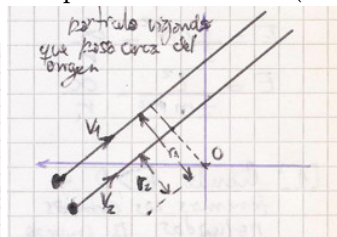 particula viajando
que pasa cerca del
origen
V1
r1
O
r2
V2